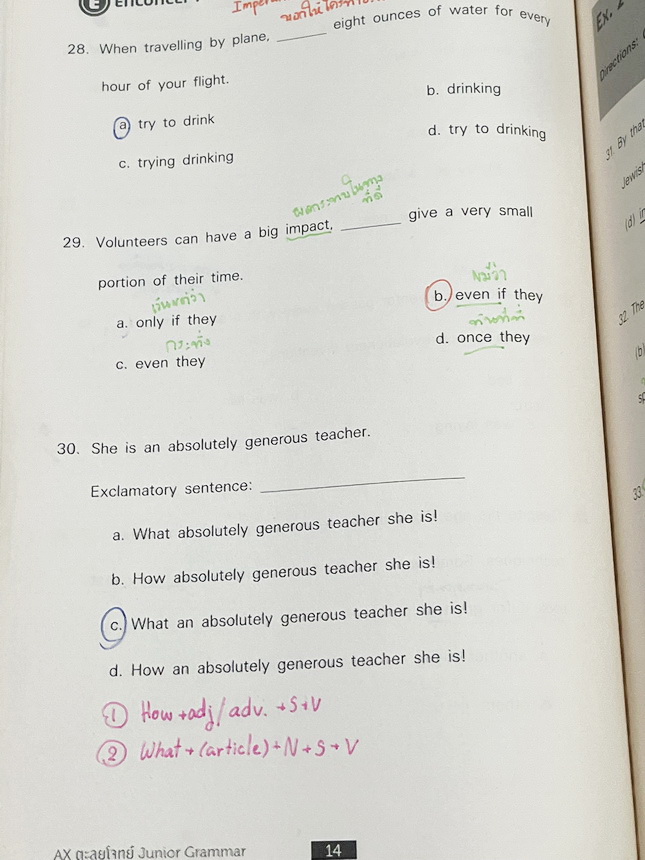 E
28. When travelling by plane, ______ eight ounces of water for every
hour of your flight.
a. try to drink
b. drinking
c. trying drinking
d. try to drinking
29. Volunteers can have a big impact, ______ give a very small
portion of their time.
แม้ว่า
a. only if they
b. even if they
กระทั่ง
ทันทีที่
c. even they
d. once they
30. She is an absolutely generous teacher.
Exclamatory sentence: ______
a. What absolutely generous teacher she is!
b. How absolutely generous teacher she is!
c. What an absolutely generous teacher she is!
d. How an absolutely generous teacher she is!
① How +adj/adv. +S+V
② What + (article) + N + S + V
AX ตะลุยโจทย์ Junior Grammar
14
Ex. 2
Directions:
31. By that
Jewish
(d)
32. The
(b)
33.